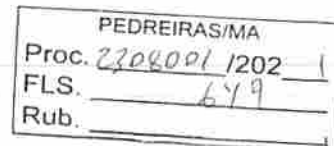 PEDREIRAS/MA
Proc. 2208001 /202 1
FLS. 649
Rub.